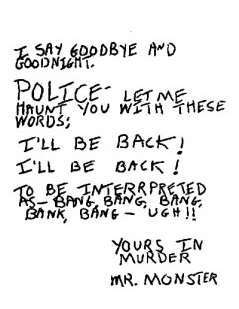 I SAY GOODBYE AND
GOODNIGHT.
POLICE- LET ME
HAUNT YOU WITH THESE
WORDS;
I'LL BE BACK!
I'LL BE BACK!
TO BE INTERRPRETED
AS- BANG BANG, BANG,
BANK, BANG - UGH!!
YOURS IN
MURDER
MR. MONSTER